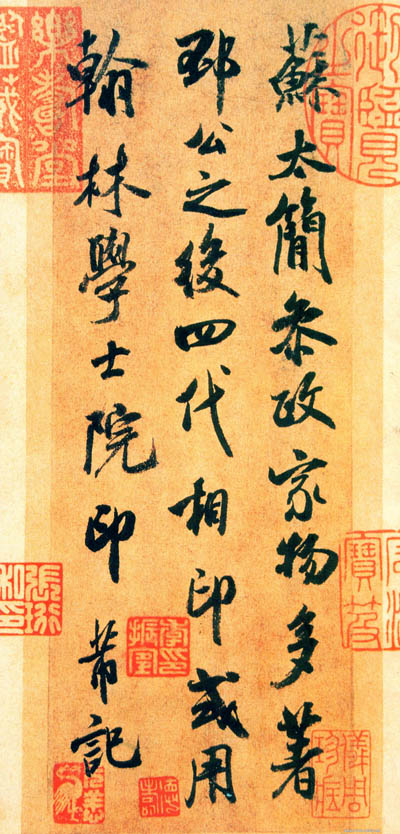 蘇太簡叅政家物多著
邳公之後四代相印或用
翰林學士院印 芾記
樂善堂